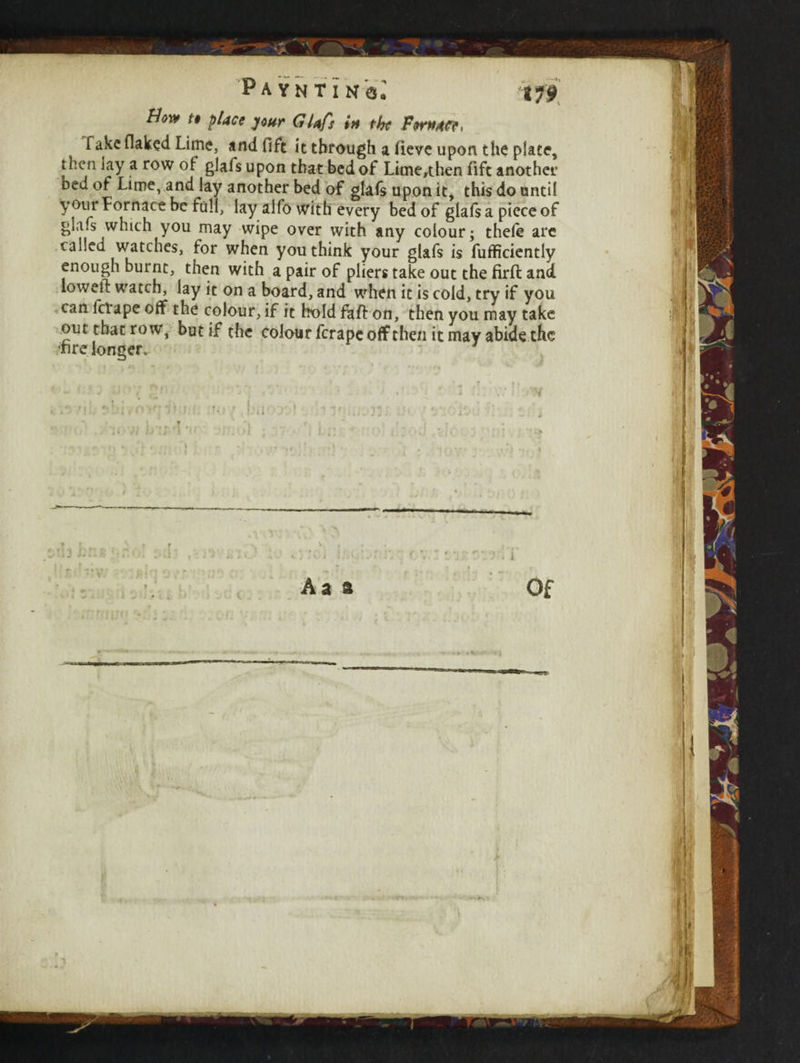 PAYNTING. 179
How to place your Glaſs in the Fornace.
Take ſlaked Lime, and ſift it through a ſieve upon the plate,
then lay a row of glaſs upon that bed of Lime, then ſift another
bed of Lime, and lay another bed of glaſs upon it, this do until
your Fornace be full, lay alſo with every bed of glaſs a piece of
glaſs which you may wipe over with any colour; theſe are
called watches, for when you think your glaſs is ſufficiently
enough burnt, then with a pair of pliers take out the firſt and
loweſt watch, lay it on a board, and when it is cold, try if you
can ſcrape off the colour, if it hold faſt on, then you may take
out that row, but if the colour ſcrape off then it may abide the
fire longer.
Aa 2 Of